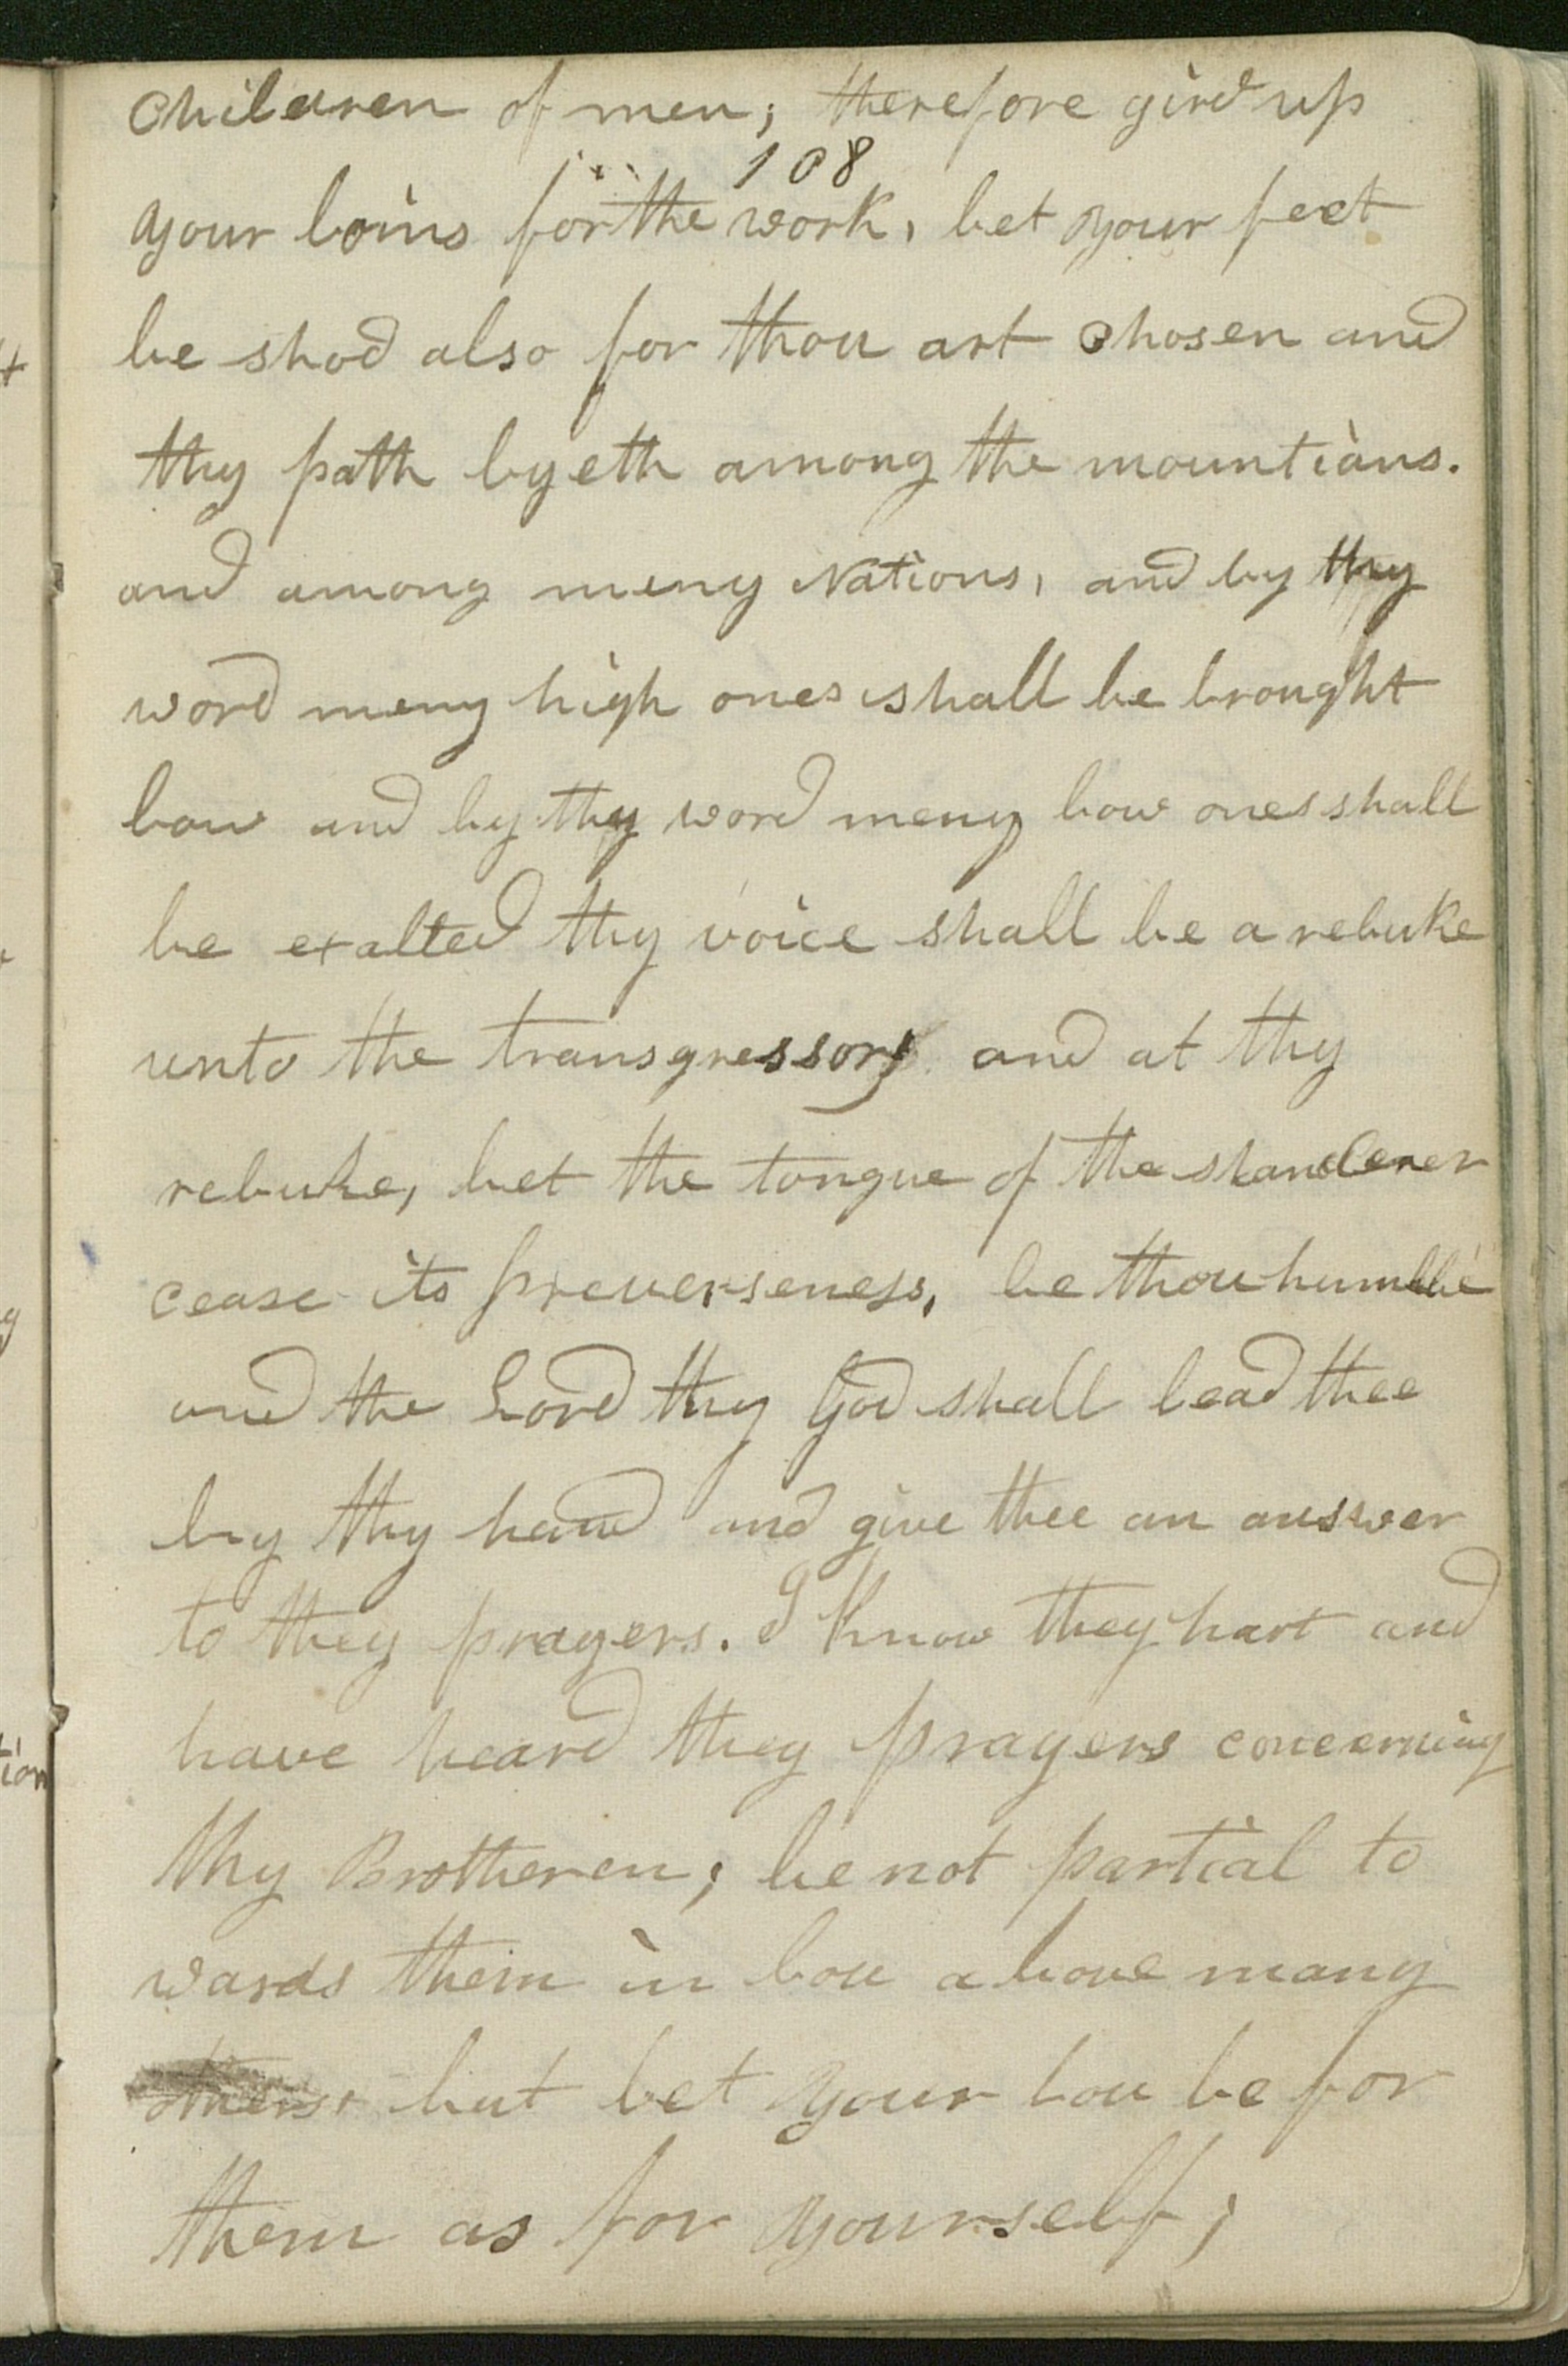 Children of men; therefore gird up
108
your loins for the work, let your feet
be shod also for thou art Chosen and
thy path lyeth among the mountians.
and among meny Nations, and by thy
word meny high ones shall be brought
low and by thy word meny low ones shall
be exalted thy voice shall be a rebuke
unto the transgressors and at thy
rebuke, let the tongue of the slanderer
cease its preverseness, be thou humble
and the Lord thy God shall lead thee
by thy hand and give thee an answer
to they prayers. I Know they hart and
have heard they prayers concerning
thy Brotheren; be not partial to
wards them in lov above many
others, but let your lov be for
them as for yourself;